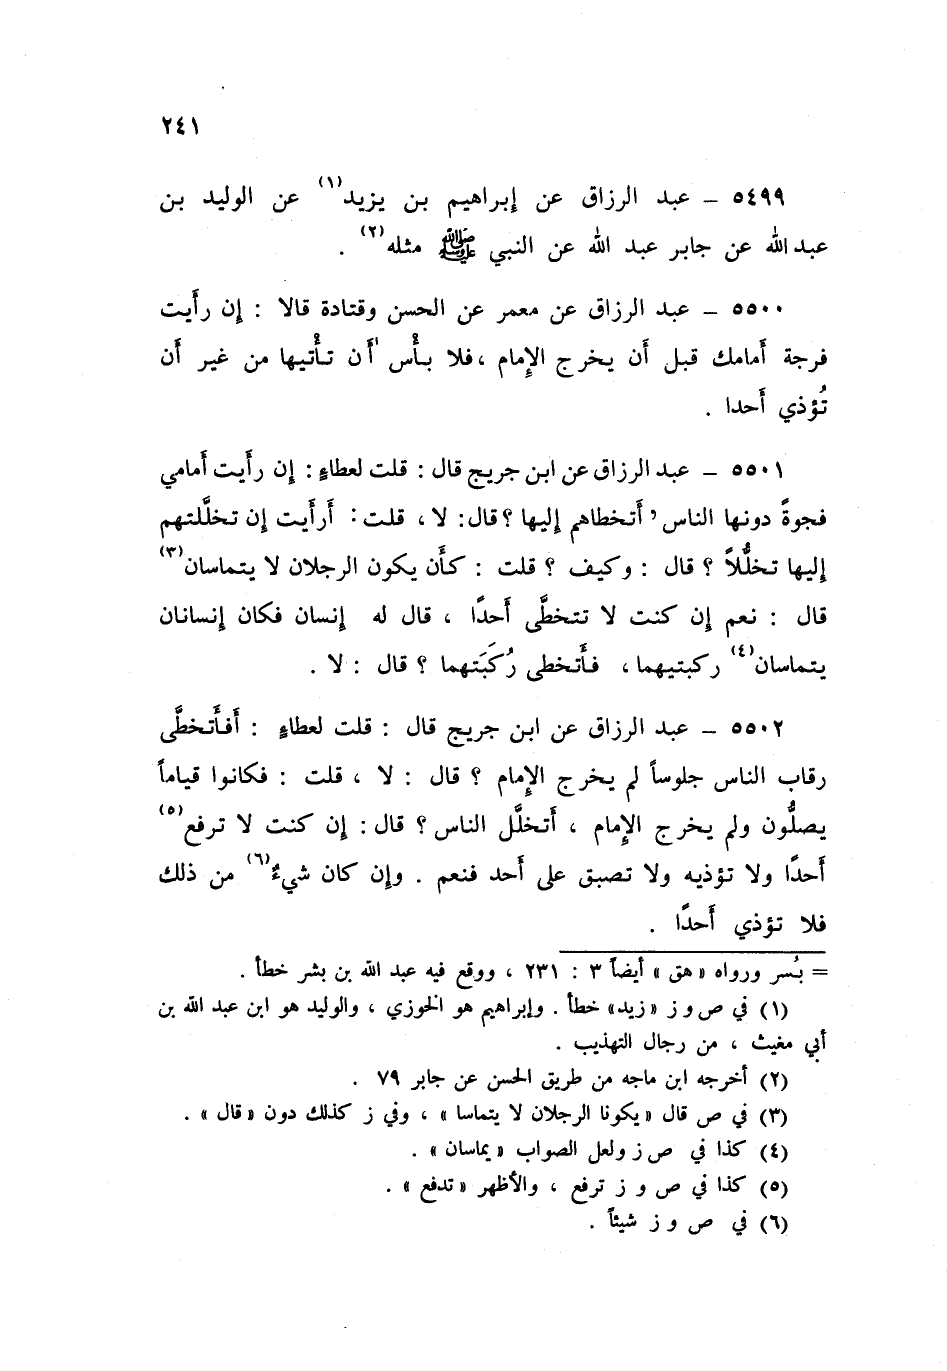 ٢٤١
٥٤٩٩ – عبد الرزاق عن إبراهيم بن يزيد(١) عن الوليد بن
عبد الله عن جابر عبد الله عن النبي ﷺ مثله(٢) .
٥٥٠٠ – عبد الرزاق عن معمر عن الحسن وقتادة قالا : إن رأيت
فرجة أمامك قبل أن يخرج الإمام ، فلا بأْس أن تأْتيها من غير أن
تُؤذي أحدا .
٥٥٠١ – عبد الرزاق عن ابن جريج قال : قلت لعطاءٍ : إن رأيت أمامي
فجوةً دونها الناس ، أتخطاهم إليها ؟ قال : لا ، قلت : أرأيت إن تخلَّلتهم
إليها تخلُّلاً ؟ قال : وكيف ؟ قلت : كأن يكون الرجلان لا يتماسان(٣)
قال : نعم إن كنت لا تتخطَّى أحدًا ، قال له إنسان فكان إنسانان
يتماسان(٤) ركبتيهما ، فأتخطى رُكبَتَهما ؟ قال : لا .
٥٥٠٢ – عبد الرزاق عن ابن جريج قال : قلت لعطاءٍ : أفأتخطَّى
رقاب الناس جلوساً لم يخرج الإمام ؟ قال : لا ، قلت : فكانوا قياماً
يصلُّون ولم يخرج الإمام ، أتخلَّل الناس ؟ قال : إن كنت لا ترفع(٥)
أحدًا ولا تؤذيه ولا تصبق على أحد فنعم . وإن كان شيءٌ(٦) من ذلك
فلا تؤذي أحدًا .
= بُسر ورواه «هق» أيضاً ٣ : ٢٣١ ، ووقع فيه عبد الله بن بشر خطأ .
(١) في ص و ز «زيد» خطأ . وإبراهيم هو الخوزي ، والوليد هو ابن عبد الله بن
أبي مغيث ، من رجال التهذيب .
(٢) أخرجه ابن ماجه من طريق الحسن عن جابر ٧٩ .
(٣) في ص قال «يكونا الرجلان لا يتماسا» ، وفي ز كذلك دون «قال» .
(٤) كذا في ص ز ولعل الصواب «يماسان» .
(٥) كذا في ص و ز ترفع ، والأظهر «تدفع» .
(٦) في ص و ز شيئاً .